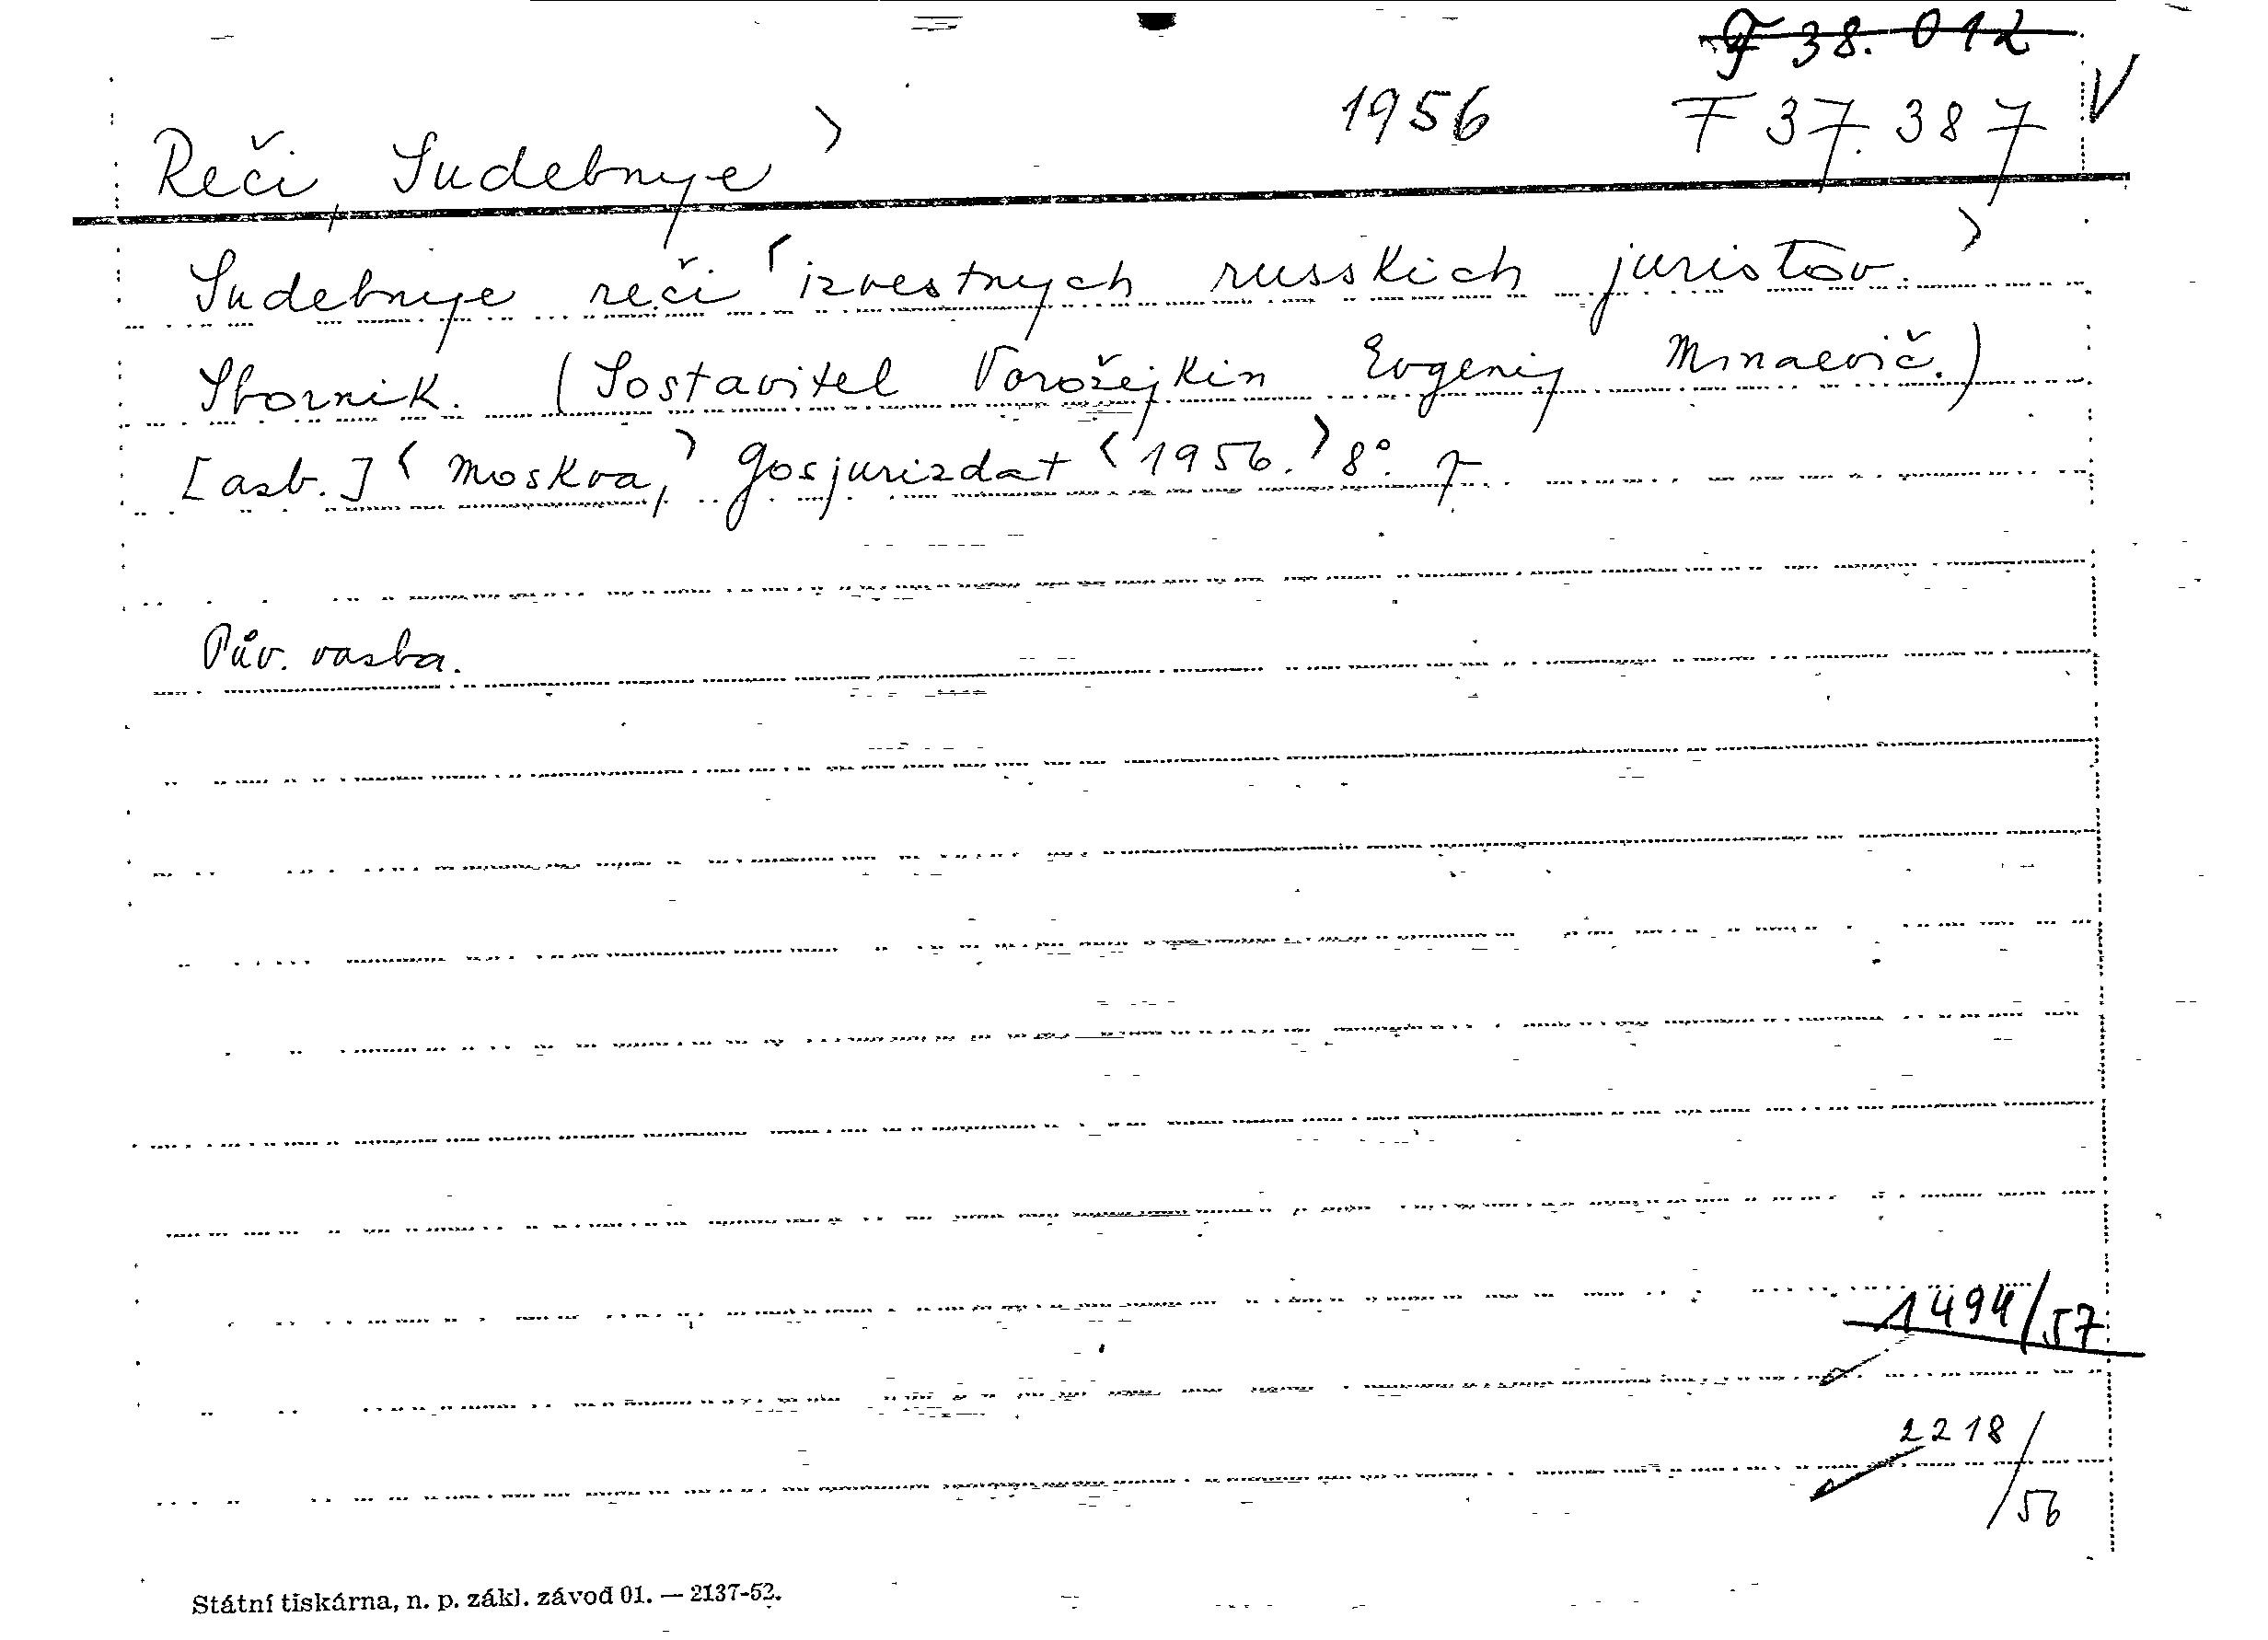 F 38.012
1956 F 37.387 V
Reči, Sudebnye >
Sudebnye reči < izvestnych russkich juristov. >
Sbornik. (Sostavitel Vorožejkin Evgenij Minaevič.)
[asb.] < Moskva, > Gosjurizdat < 1956. > 8°.
Pův. vazba.
1494/57
2218/56
Státní tiskárna, n. p. zákl. závod 01. — 2137-52.